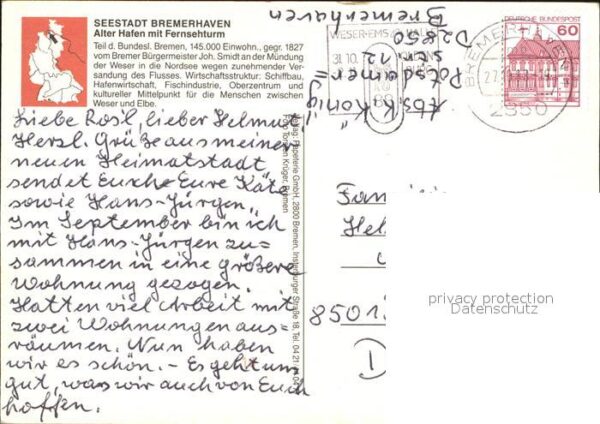 SEESTADT BREMERHAVEN
Alter Hafen mit Fernsehturm
Teil d. Bundesl. Bremen, 145.000 Einwohn., gegr. 1827
vom Bremer Bürgermeister Joh. Smidt an der Mündung
der Weser in die Nordsee wegen zunehmender Ver-
sandung des Flusses. Wirtschaftsstruktur: Schiffbau,
Hafenwirtschaft, Fischindustrie, Oberzentrum und
kultureller Mittelpunkt für die Menschen zwischen
Weser und Elbe.
Liebe Rosl, lieber Helmut
Herzl. Grüße aus meiner
neuen Heimatstadt
sendet Euch Eure Käte
sowie Hans-Jürgen.
Im September bin ich
mit Hans-Jürgen zu=
sammen in eine größere
Wohnung gezogen.
Hatten viel Arbeit mit
zwei Wohnungen aus=
räumen. Nun haben
wir es schön. - Es geht uns
gut, was wir auch von Euch
hoffen.
Abs. K. König
Potsdamer=
str. 12
D2850
Bremerhaven
WESER-EMS
31.10.
DEUTSCHE BUNDESPOST
60
BREMERHAVEN
27.
2850
Papeterie GmbH, 2800 Bremen, Insterburger Straße 18, Tel. 04 21
Krüger, Bremen
Fam
Hel
8501
D
privacy protection
Datenschutz